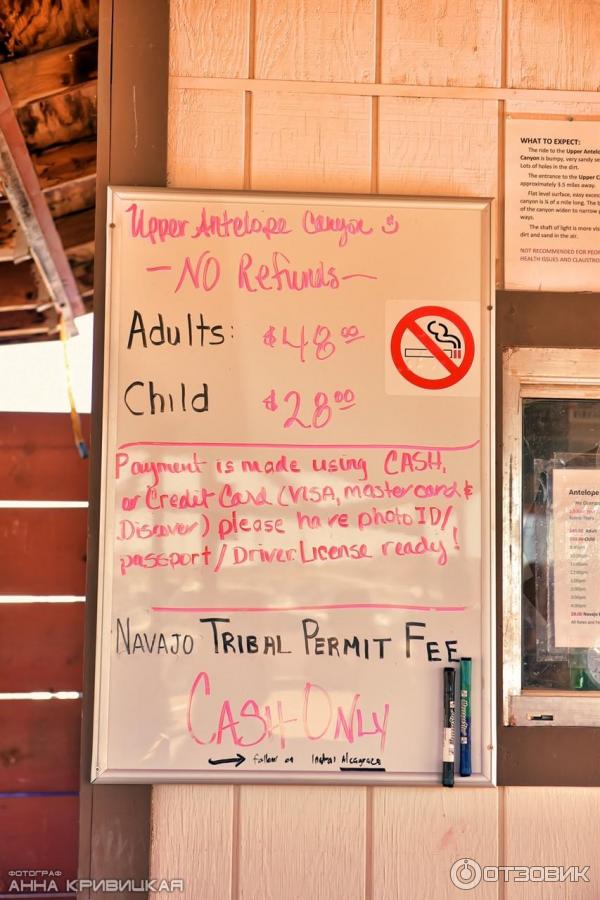 Upper Antelope Canyon
- NO Refunds -
Adults: $48.00
Child $28.00
Payment is made using CASH,
or Credit Card (VISA, mastercard &
Discover) please have photo ID/
passport/Driver License ready!
NAVAJO TRIBAL PERMIT FEE
CASH ONLY
follow on
WHAT TO EXPECT:
The ride to the Upper Antelo
Canyon is bumpy, very sandy se
Lots of holes in the dirt.
The entrance to the Upper C
approximately 3.5 miles away.
Flat level surface, easy
canyon is ¼ of a mile long. The b
of the canyon widen to narrow p
ways.
The shaft of light is more visi
dirt and sand in the air.
NOT RECOMMENDED FOR PEOP
HEALTH ISSUES AND CLAUSTRO
Antelope
Adult
Child
ФОТОГРАФ
АННА КРИВИЦКАЯ
ОТЗОВИК